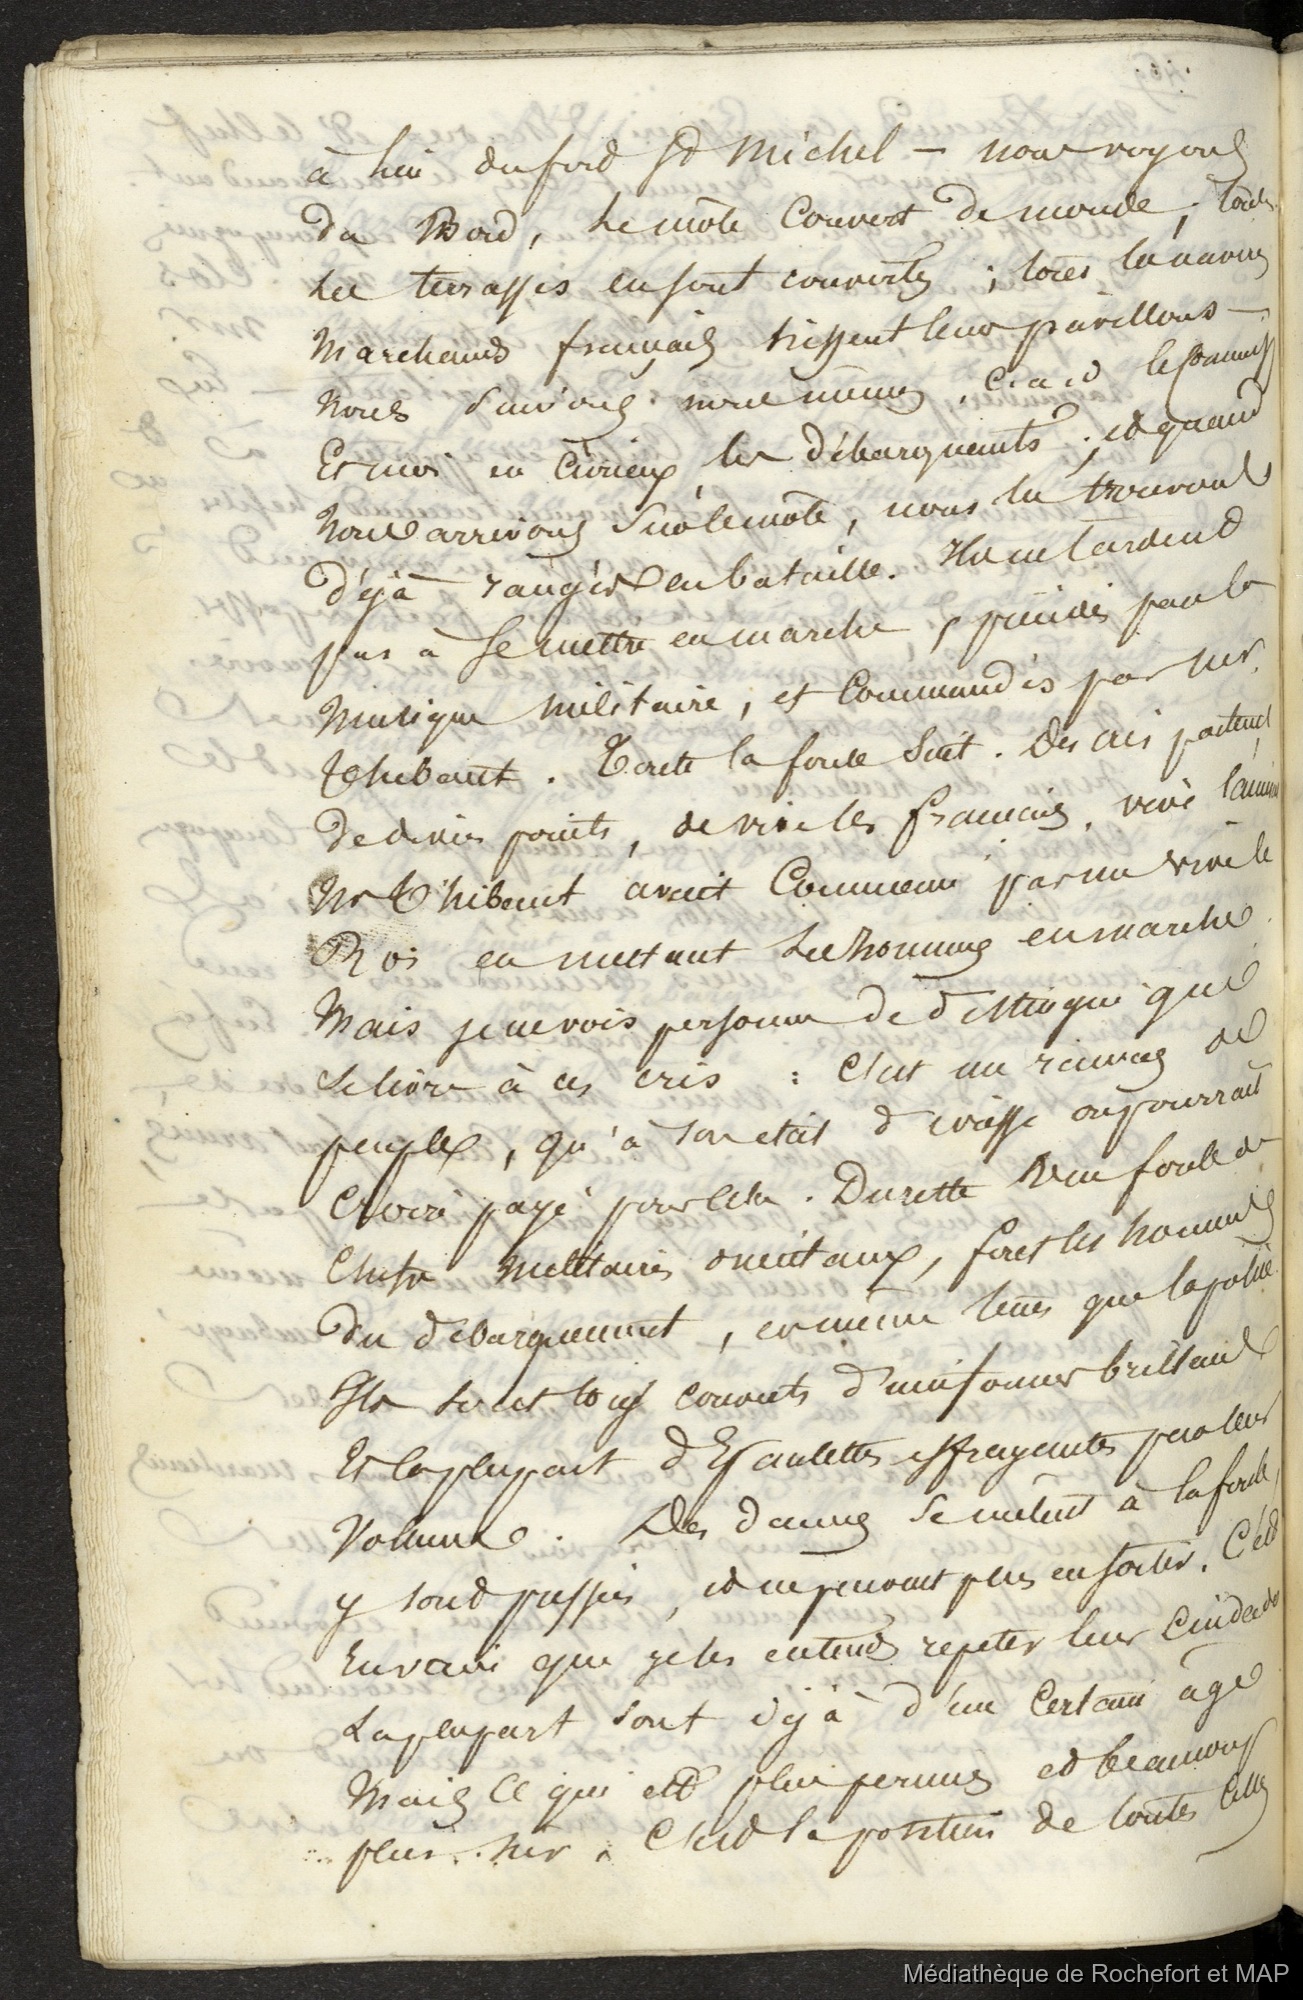 à lui du fort St Michel - nous voyons
du Bord, le môle Couvert de monde, toutes
les terrasses en sont couvertes ; tous les navires
Marchands français hissent leurs pavillons -
nous suivons nous mêmes,
Et moi en Curieux les débarquants ; et quand
Nous arrivons sur le môle, nous les trouvons
déjà rangés en bataille. Ils ne tardent
pas à se mettre en marche, par la
Musique militaire, et Commandés par mr.
Thibeaut. Toute la foule suit. Des cris partent
de divers points, de vive les français, vive l'amiral
Mr Thibeaut avait Commencé par un vive le
Roi en mettant les hommes en marche
Mais je ne vois personne de distingué qui
se livre à ces cris : C'est un ramas de
peuple, qu'à son état d'ivresse on pourrait
Croire payé pour cela. Du reste Une foule de
Chefs Militaires orientaux, suit les hommes
du débarquement, en même tems que la police
Ils sont tous couverts d'uniformes brillants
Et la plupart d'Epaulettes effrayantes par leur
Volume. Des dames se mêlent à la foule,
y sont pressées, et ne peuvent plus en sortir. C'est
En vain que je les entends repeter leur Cuidado
La plupart sont déjà d'un Certain âge
Mais Ce qui est plus permis et beaucoup
plus sûr, C'est la position de toutes celles
Médiathèque de Rochefort et MAP